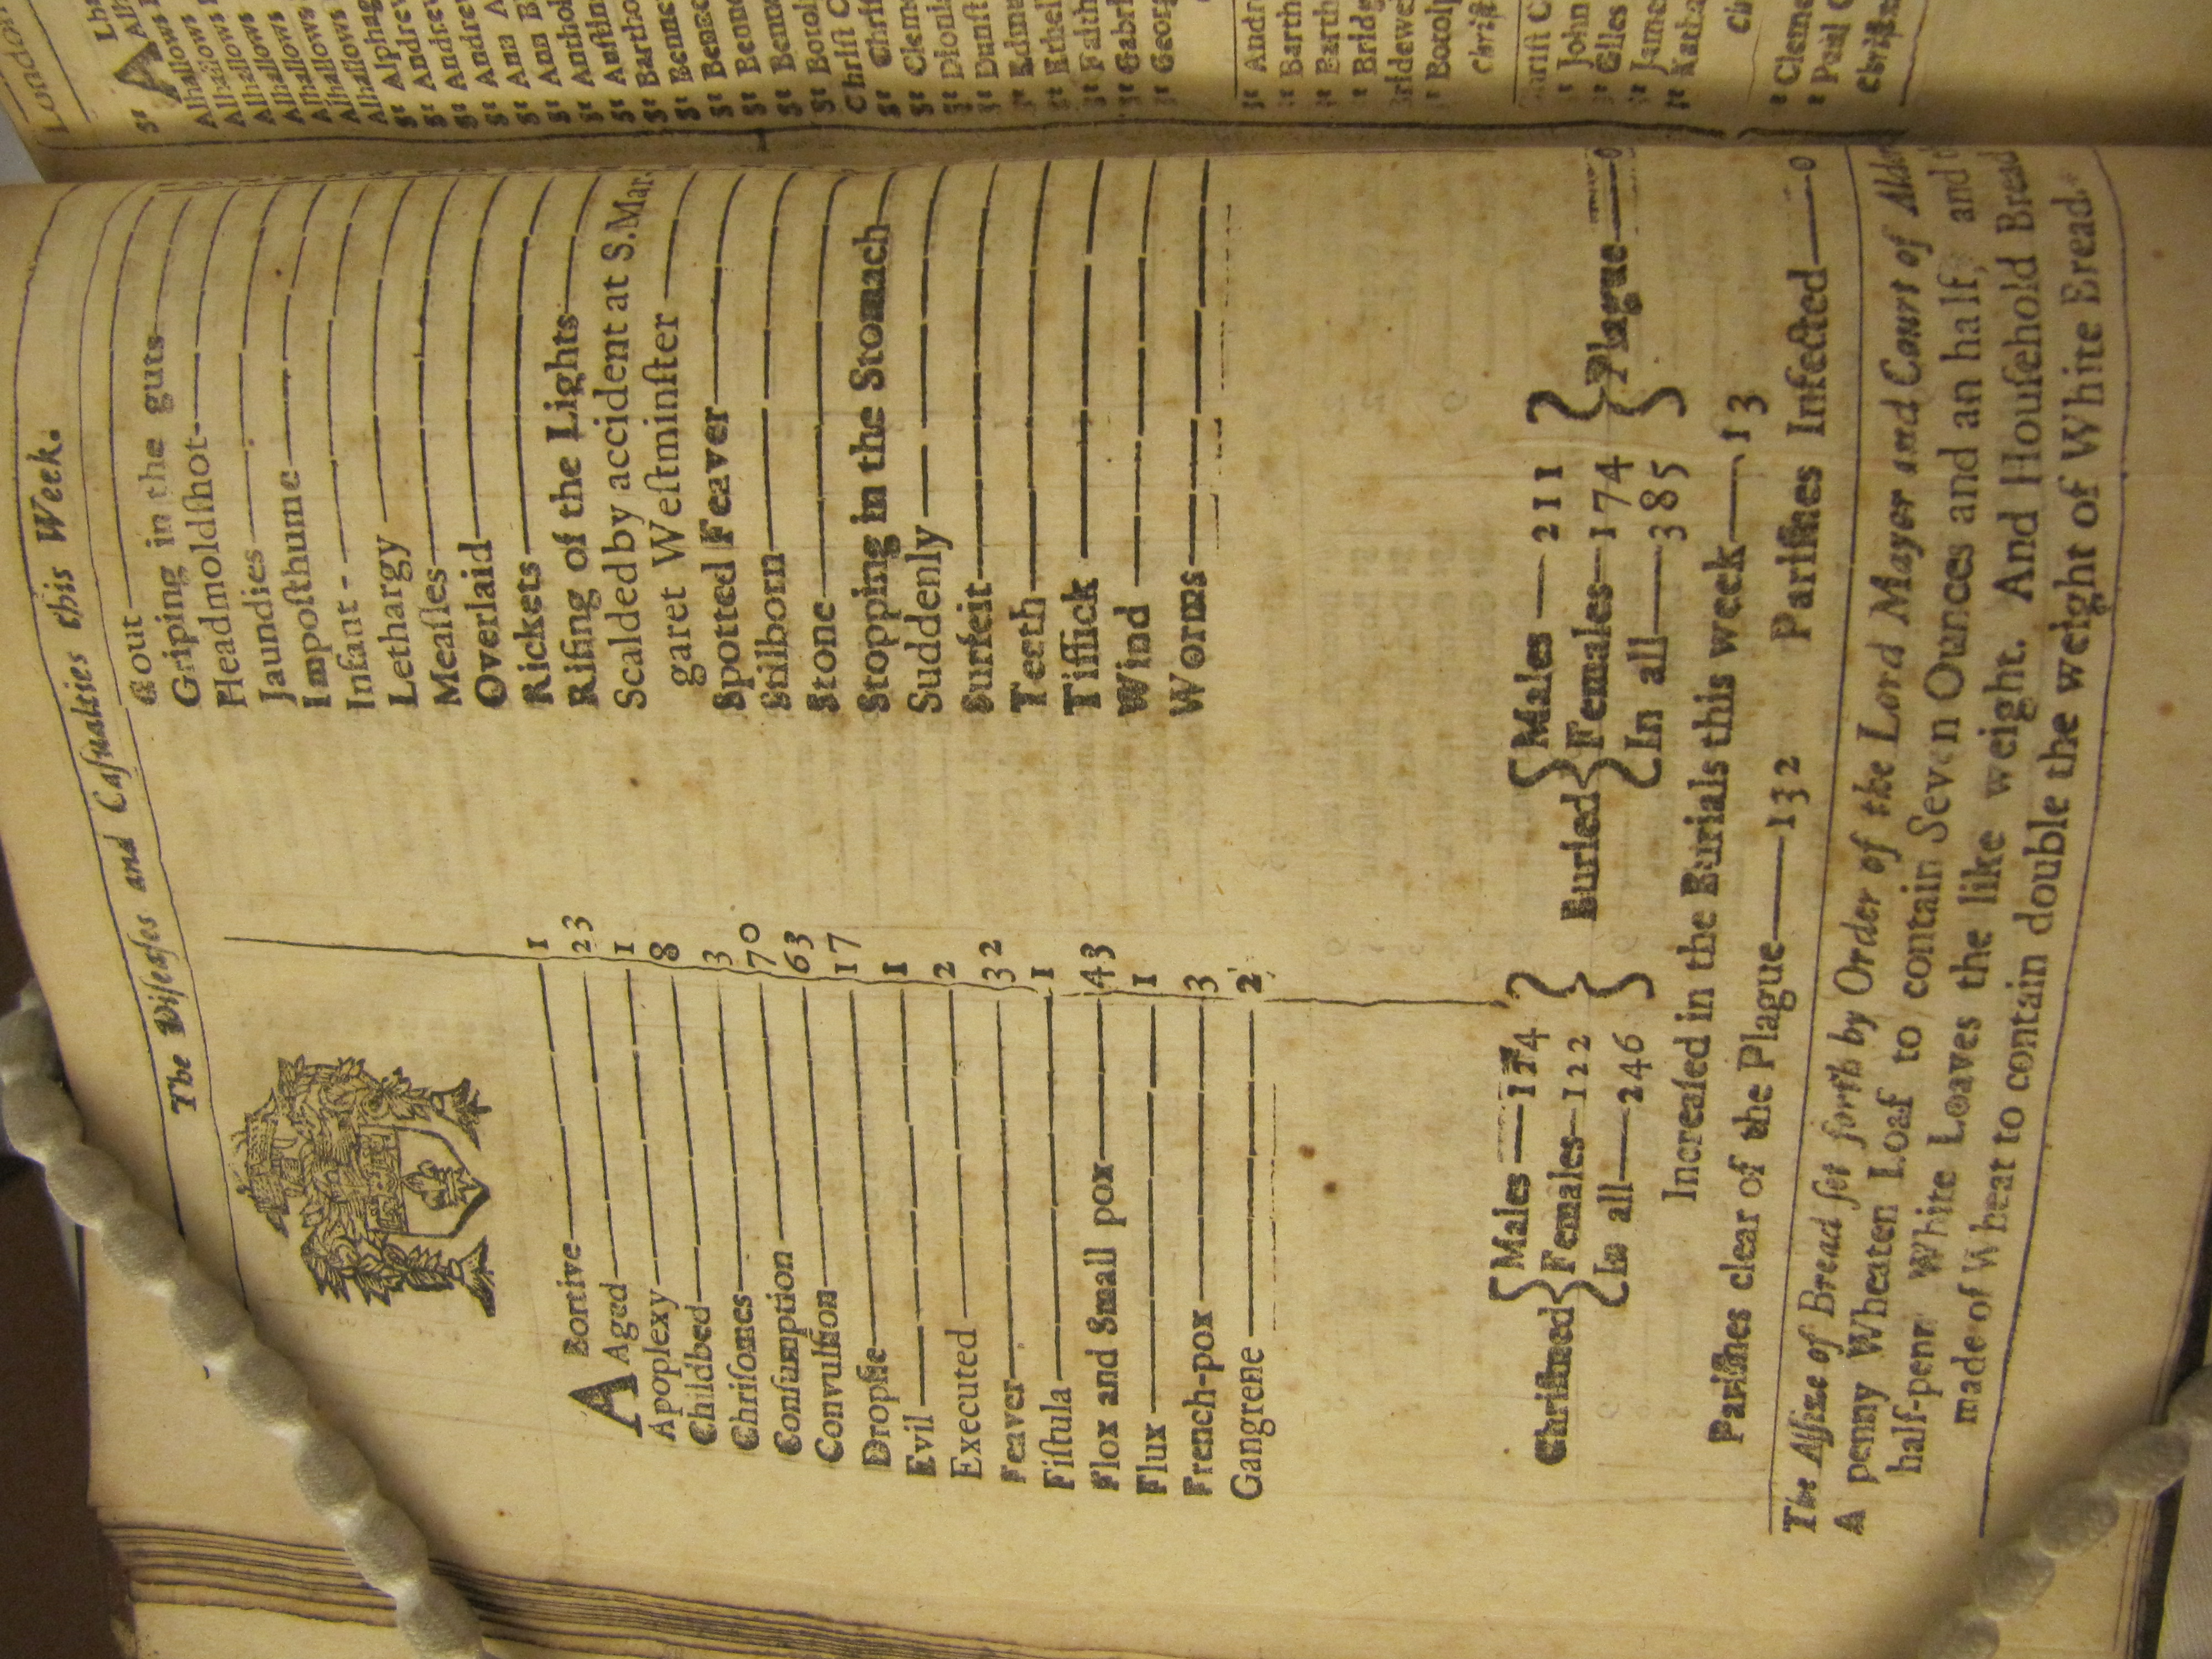 The Diſeaſes and Caſualties this Week.
ABortive 1
Aged 23
Apoplexy 1
Childbed 8
Chriſomes 3
Conſumption 70
Convulſion 63
Dropſie 17
Evil 1
Executed 2
Feaver 32
Fiſtula 1
Flox and Small pox 43
Flux 1
French-pox 3
Gangrene 2
Gout
Griping in the guts
Headmoldſhot
Jaundies
Impoſthume
Infant
Lethargy
Meaſles
Overlaid
Rickets
Riſing of the Lights
Scalded by accident at S. Mar
garet Weſtminſter
Spotted Feaver
Stilborn
Stone
Stopping in the Stomach
Suddenly
Surfeit
Teeth
Tiſſick
Wind
Worms
Chriſtned { Males 124 Females 122 In all 246 }
Buried { Males 211 Females 174 In all 385 } Plague 0
Increaſed in the Burials this week 13
Pariſhes clear of the Plague 132 Pariſhes Infected 0
The Aſſize of Bread ſet forth by Order of the Lord Mayor and Court of
A penny Wheaten Loaf to contain Seven Ounces and an half, and
half-penny White Loaves the like weight. And Houſehold Bread
made of Wheat to contain double the weight of White Bread.
London
Alhallows
Alhallows
Alhallows
Alhallows
Alhallows
Alhallows
Alhallows
St Alphag
St Andrew
St Andrew
St Andrew
St Ann A
St Ann B
St Anthol
St Auſtin
St Bartho
St Bennet
St Benne
St Benne
St Benne
St Botol
Chriſt C
St Chriſ
St Cleme
St Dionis
St Dunſt
St Edmu
St Ethel
St Faith
St Gabri
St Georg
Andr
Barth
Barth
Bridg
Bridewel
Botolp
Chriſt C
John
Giles
Jame
Katha
Cleme
Paul C